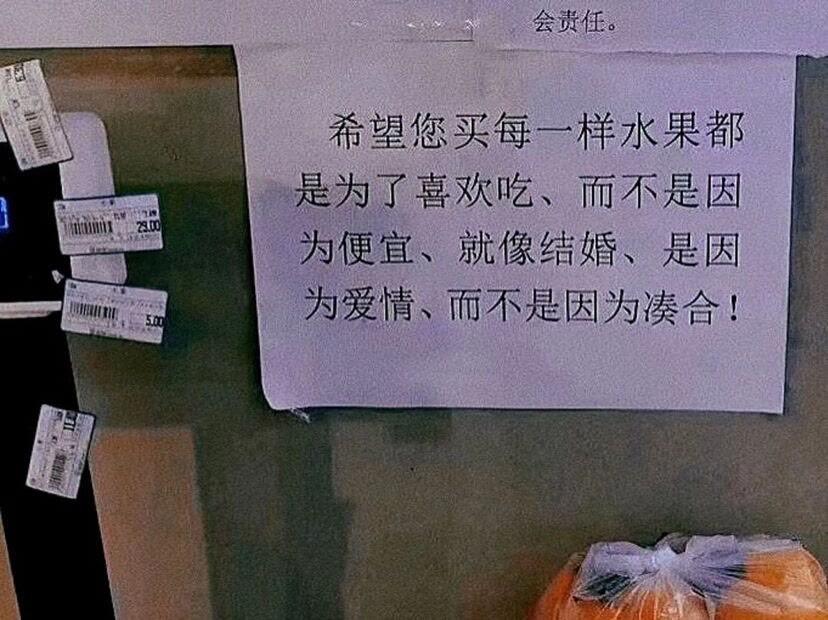 会责任。
希望您买每一样水果都
是为了喜欢吃、而不是因
为便宜、就像结婚、是因
为爱情、而不是因为凑合！
29.00
5.00